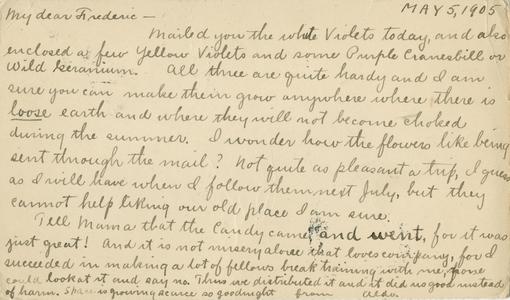 MAY 5, 1905
My dear Frederic —
Mailed you the white Violets today, and also
enclosed a few Yellow Violets and some Purple Cranesbill or
Wild Geranium. All three are quite hardy and I am
sure you can make them grow anywhere where there is
loose earth and where they will not become choked
during the summer. I wonder how the flowers like being
sent through the mail? Not quite as pleasant a trip, I guess
as I will have when I follow them next July, but they
cannot help liking our old place I am sure.
Tell Mama that the Candy came and went, for it was
just great! And it is not misery alone that loves company, for I
succeeded in making a lot of fellows break training with me, none
could look at it and say no. Thus we distributed it and it did us good instead
of harm. Space is growing scarce so goodnight from Aldo.